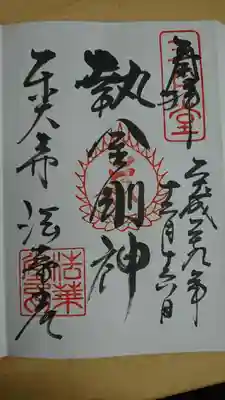 奉拝
平成二九年
十二月十六日
執金剛神
東大寺 法華堂